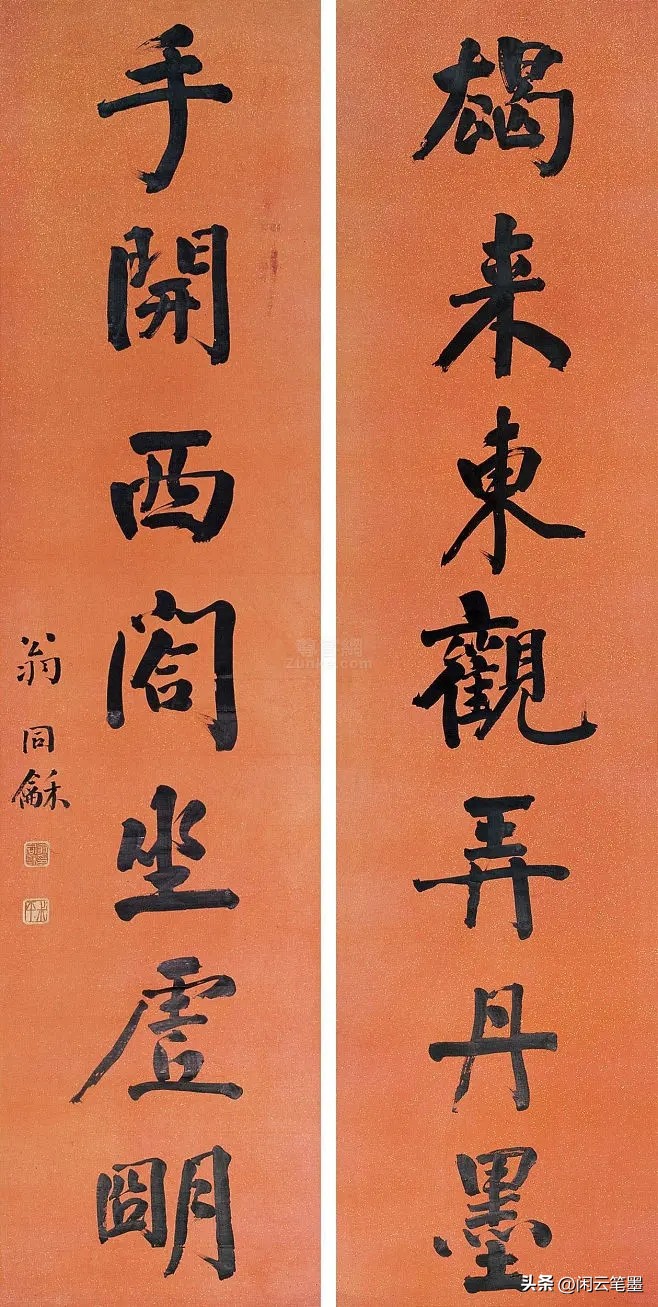 朅来東觀弄丹墨
手開西閤坐虛朙
翁同龢
Zunke.com
头条 @闲云笔墨